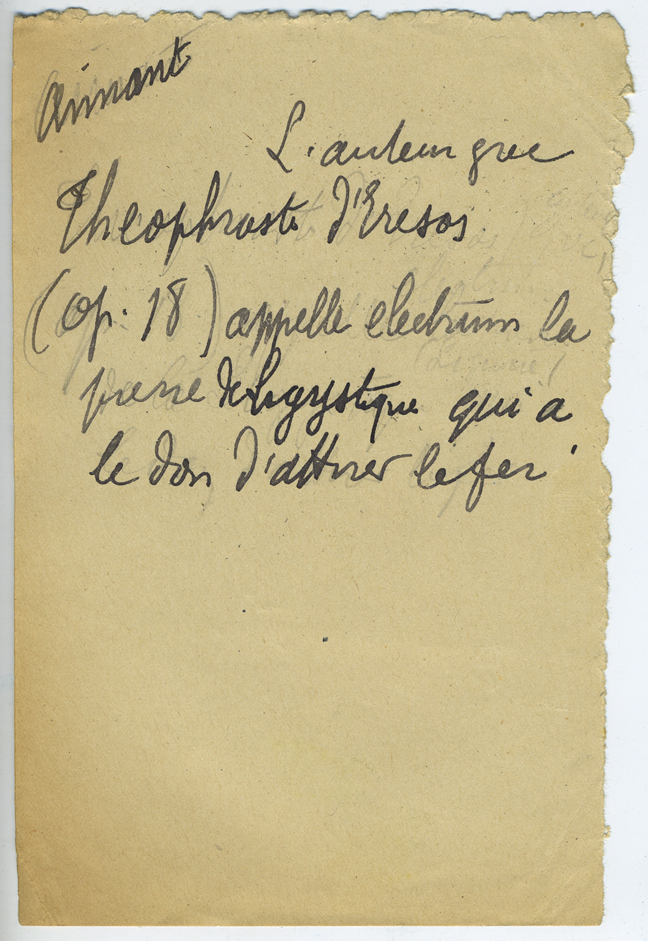 Aimant
L'auteur grec
Théophraste d'Eresos
(op. 18) appelle electrum la
pierre de Lygystique qui a
le don d'attirer le fer